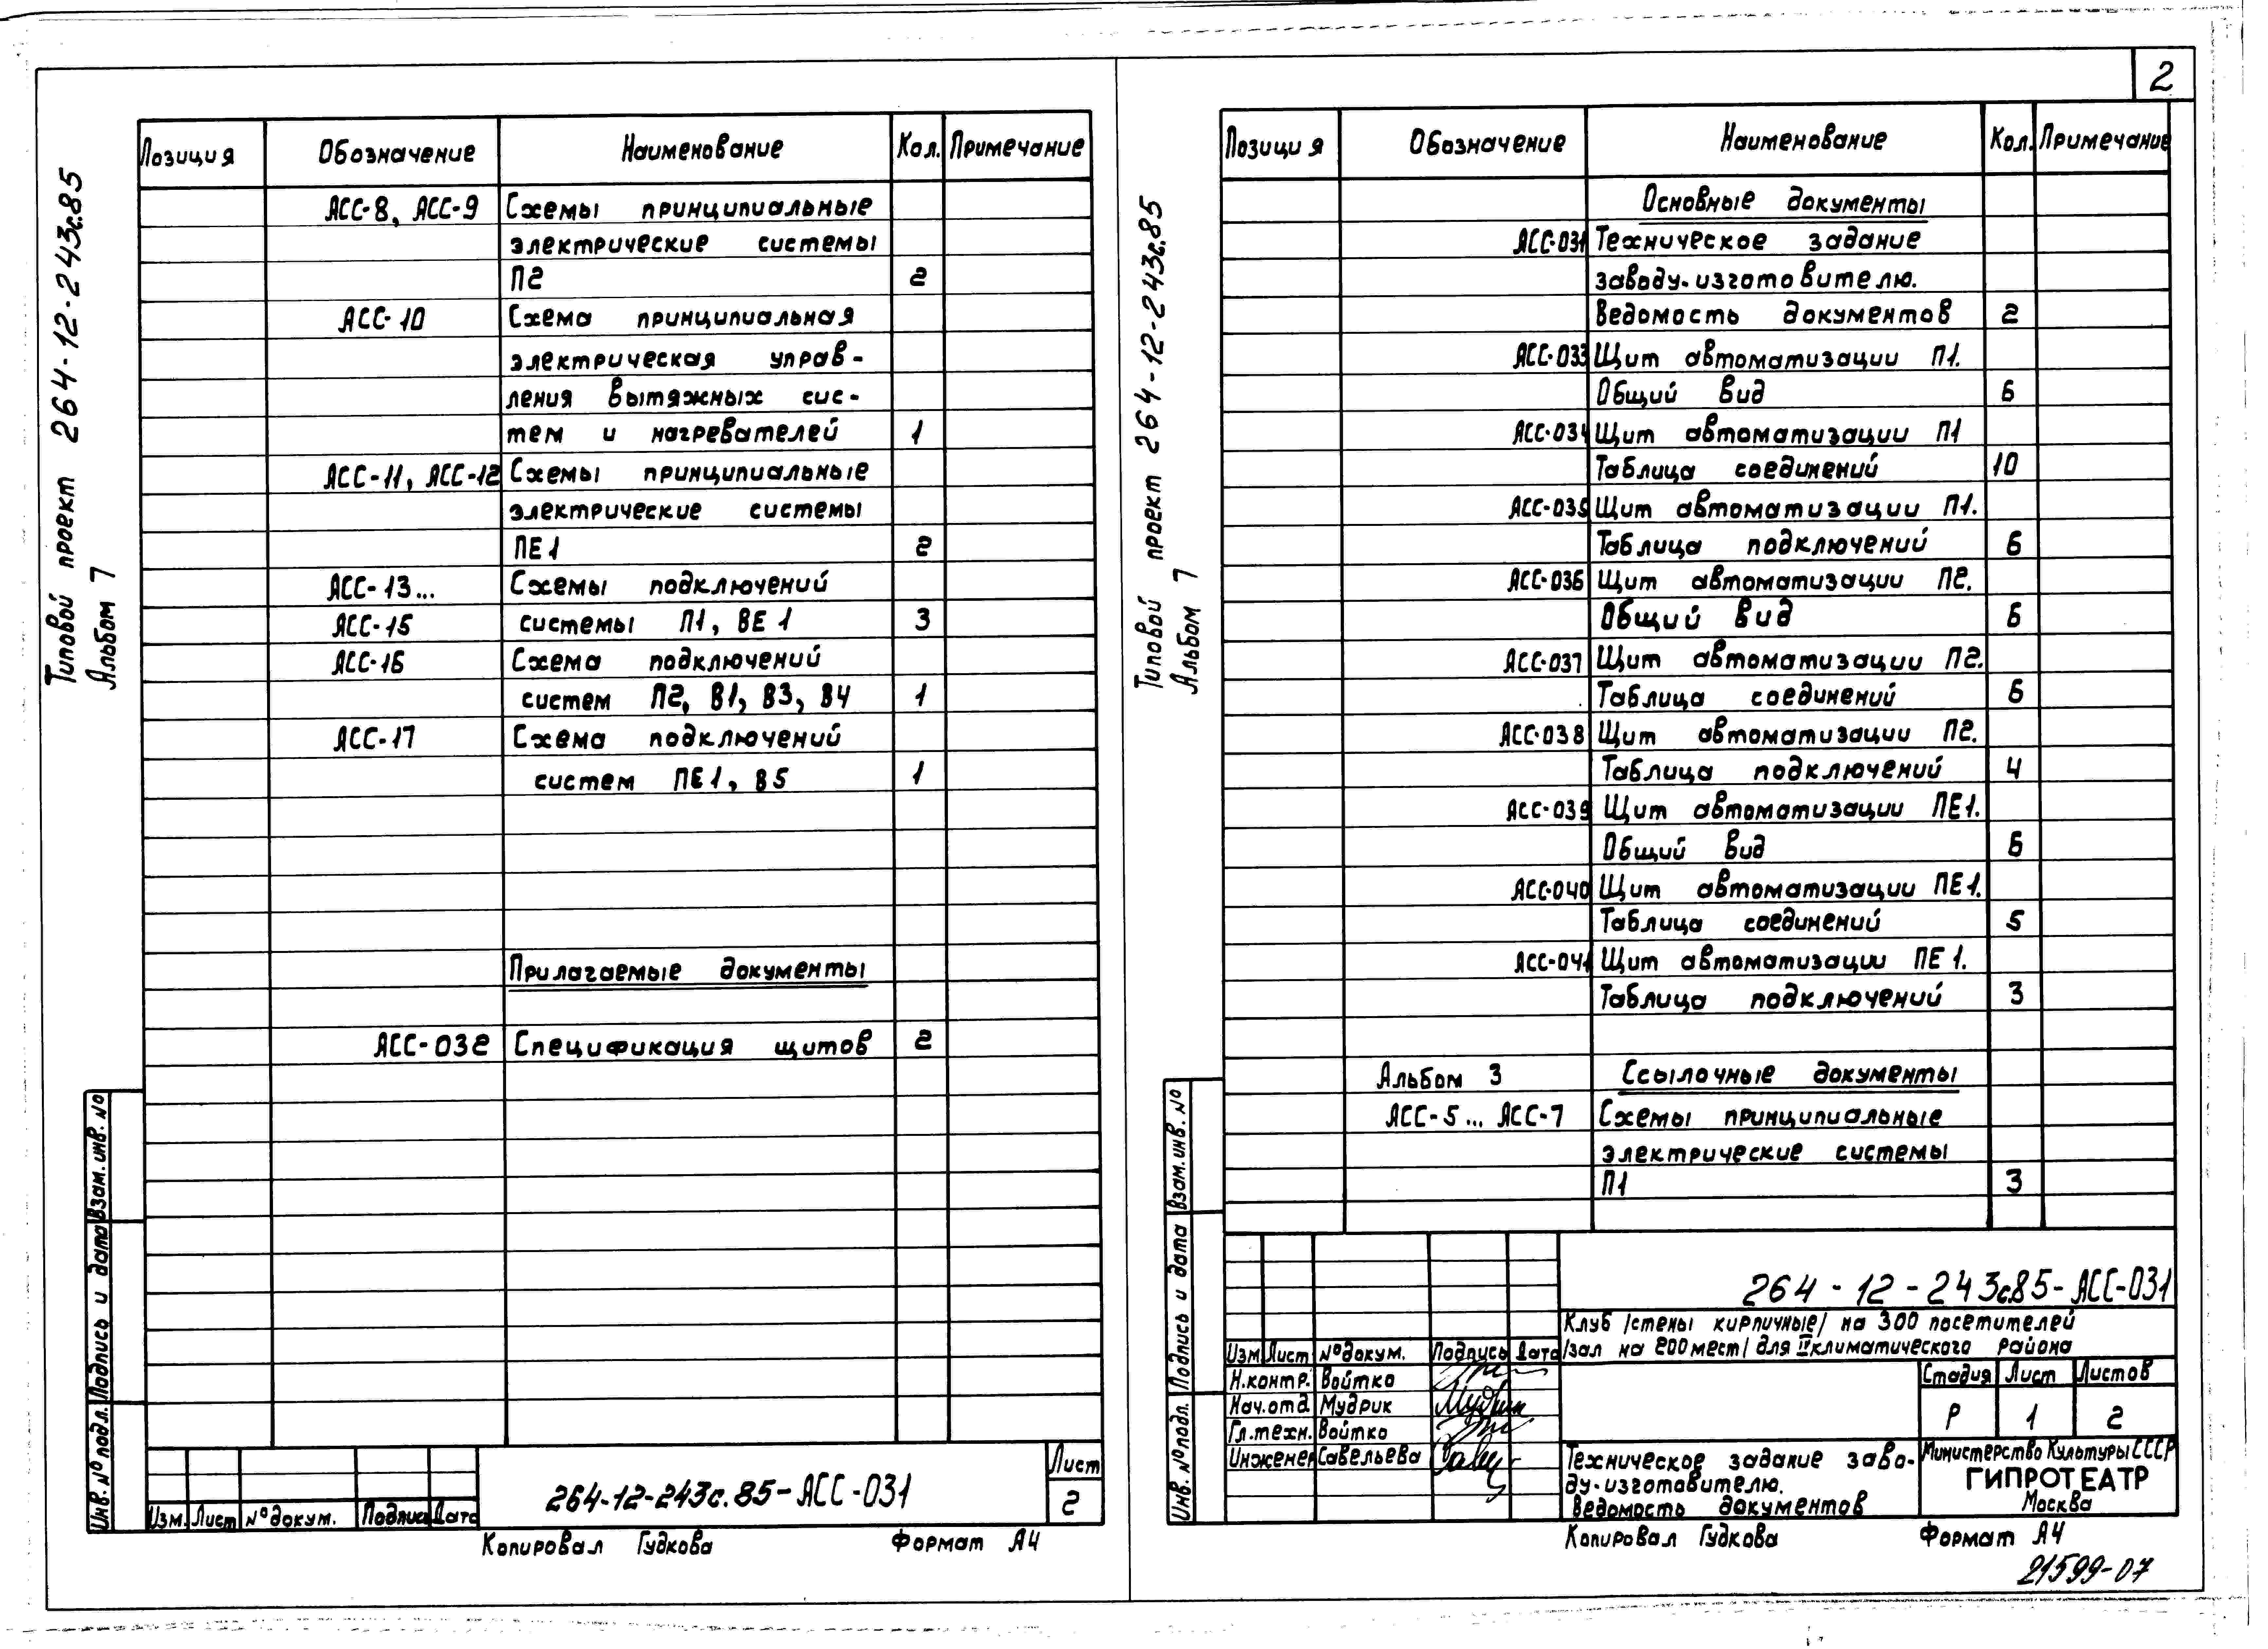 2
Типовой проект 264-12-243с.85
Альбом 7
Позиция Обозначение Наименование Кол. Примечание
АСС-8, АСС-9 Схемы принципиальные
электрические системы
П2 2
АСС-10 Схема принципиальная
электрическая управ-
ления вытяжных сис-
тем и нагревателей 1
АСС-11, АСС-12 Схемы принципиальные
электрические системы
ПЕ1 2
АСС-13... Схемы подключений
АСС-15 системы П1, ВЕ1 3
АСС-16 Схема подключений
систем П2, В1, В3, В4 1
АСС-17 Схема подключений
систем ПЕ1, В5 1
Прилагаемые документы
АСС-032 Спецификация щитов 2
Взам. инв. №
Подпись и дата
Инв. № подл.
Изм. Лист № докум. Подпись Дата
264-12-243с.85-АСС-031
Лист
2
Копировал Гудкова Формат А4
Типовой проект 264-12-243с.85
Альбом 7
Позиция Обозначение Наименование Кол. Примечание
Основные документы
АСС-031 Техническое задание
заводу-изготовителю.
Ведомость документов 2
АСС-033 Щит автоматизации П1.
Общий вид 6
АСС-034 Щит автоматизации П1
Таблица соединений 10
АСС-035 Щит автоматизации П1.
Таблица подключений 6
АСС-036 Щит автоматизации П2.
Общий вид 6
АСС-037 Щит автоматизации П2.
Таблица соединений 6
АСС-038 Щит автоматизации П2.
Таблица подключений 4
АСС-039 Щит автоматизации ПЕ1.
Общий вид 6
АСС-040 Щит автоматизации ПЕ1.
Таблица соединений 5
АСС-041 Щит автоматизации ПЕ1.
Таблица подключений 3
Альбом 3 Ссылочные документы
АСС-5... АСС-7 Схемы принципиальные
электрические системы
П1 3
Взам. инв. №
Подпись и дата
Инв. № подл.
264-12-243с.85-АСС-031
Клуб /стены кирпичные/ на 300 посетителей
/зал на 200 мест/ для II климатического района
Изм. Лист № докум. Подпись Дата
Н.контр. Войтко
Нач.отд. Мудрик
Гл.техн. Войтко
Инженер Савельева
Стадия Лист Листов
Р 1 2
Техническое задание заво-
ду-изготовителю.
Ведомость документов
Министерство Культуры СССР
ГИПРОТЕАТР
Москва
Копировал Гудкова Формат А4
21599-07